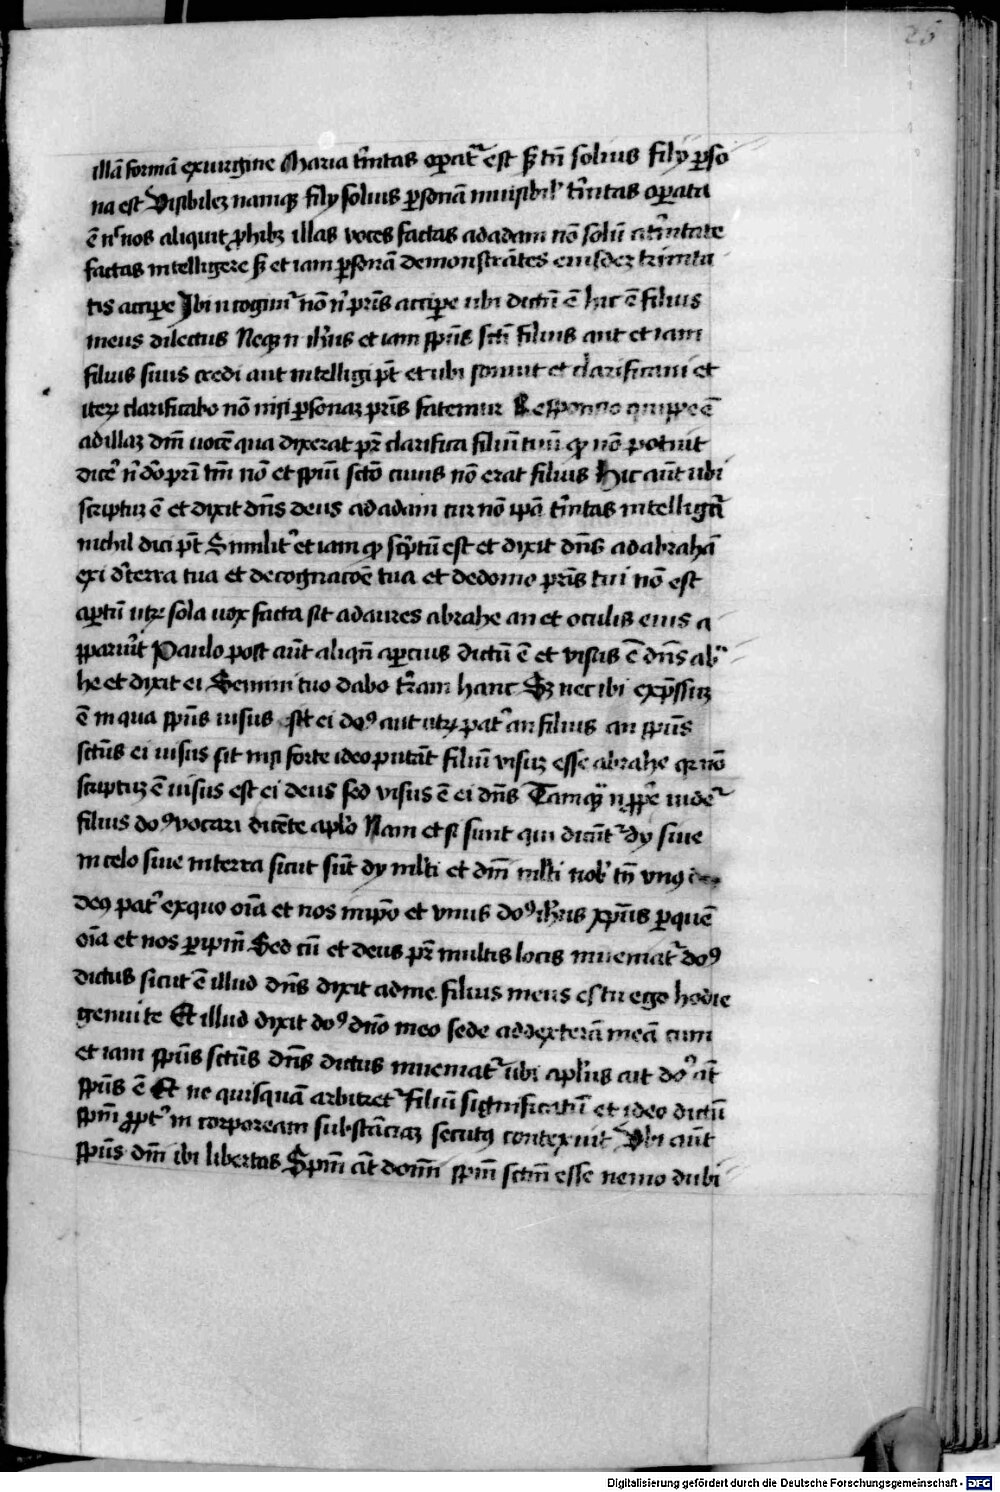 26
illā formā exuirgine Maria t'nitas opat' est sʒ tn̄ solius filij pso
na est Visibilez namqʒ filij solius psonā inuisibil' t'nitas opata
ē nc̄ nos aliquit phibz illas voces factas adadam nō solū atrinitate
factas intelligere sʒ et iam psonā demonstrātes eiusdez trinita
tis accipe Ibi n cogim' nō n' pr̄is accipe ubi dictū ē hic ē filius
meus dilectus Neqʒ n ih'us et iam spūs scī filius aut et iam
filius suus credi aut intelligi pt̄ et ubi sonuit et clarificaui et
iterʒ clarificabo nō nisi psonaz pr̄is fatemur Responsio quippe ē
ad illaz dnī uocē qua dixerat pr̄ clarifica filiū tuū qd nō potuit
dice' n' dō pr̄i tm̄ nō et spūi sctō cuius nō erat filius Hic aūt ubi
scriptuʒ ē et dixit dn̄s deus ad adam cur nō ipā t'nitas intelligat'
nichil dici pt̄ Similit' et iam qd sc'ptū est et dixit dn̄s ad abrahā
exi d'terra tua et decognacōe tua et dedomo pr̄is tui nō est
aptū utrʒ sola uox facta sit adaures abrahe an et oculis eius a
pparu'it Paulo post aūt aliqn̄ apcius dictū ē et visus ē dn̄s ab'
he et dixit ei Semini tuo dabo t'ram hanc Sʒ nec ibi exp̄ssuʒ
ē in qua spūs uisus sit ei do⁹ aut utrʒ pat' an filius an spūs
sctūs ei uisus sit nisi forte ideo putāt filiū visuʒ esse abrahe qr nō
scriptuʒ ē uisus est ei deus sed visus ē ei dn̄s Tamqʒ n ppe uide'
filius do⁹ vocari dicēte aplō Nam et si sunt qui dicūt' dij siue
in celo siue interra sicut sūt dij ml'ti et dnī ml'ti nob' tn̄ vnus
deꝰ pat' exquo oīa et nos inipō et vnus do⁹ ih'us xpūs p quē
oīa et nos p ipm̄ Sed cū et deus pr̄ multis locis inueniat' do⁹
dictus sicut ē illud dn̄s dixit adme filius meus es tu ego hodie
genui te Et illud dixit do⁹ dn̄o meo sede addexterā meā cum
et iam spūs sctūs dn̄s dictus inueniat' ubi apl'us ait do⁹ āt
spūs ē Et ne quisquā arbitret' filiū significatū et ideo dictū
spm̄ ppt' in corpoream substāciaʒ secutꝰ contexuit Vbi aūt
spūs dnī ibi libertas Spm̄ āt domīni spm̄ sctm̄ esse nemo dubi
Digitalisierung gefördert durch die Deutsche Forschungsgemeinschaft - DFG